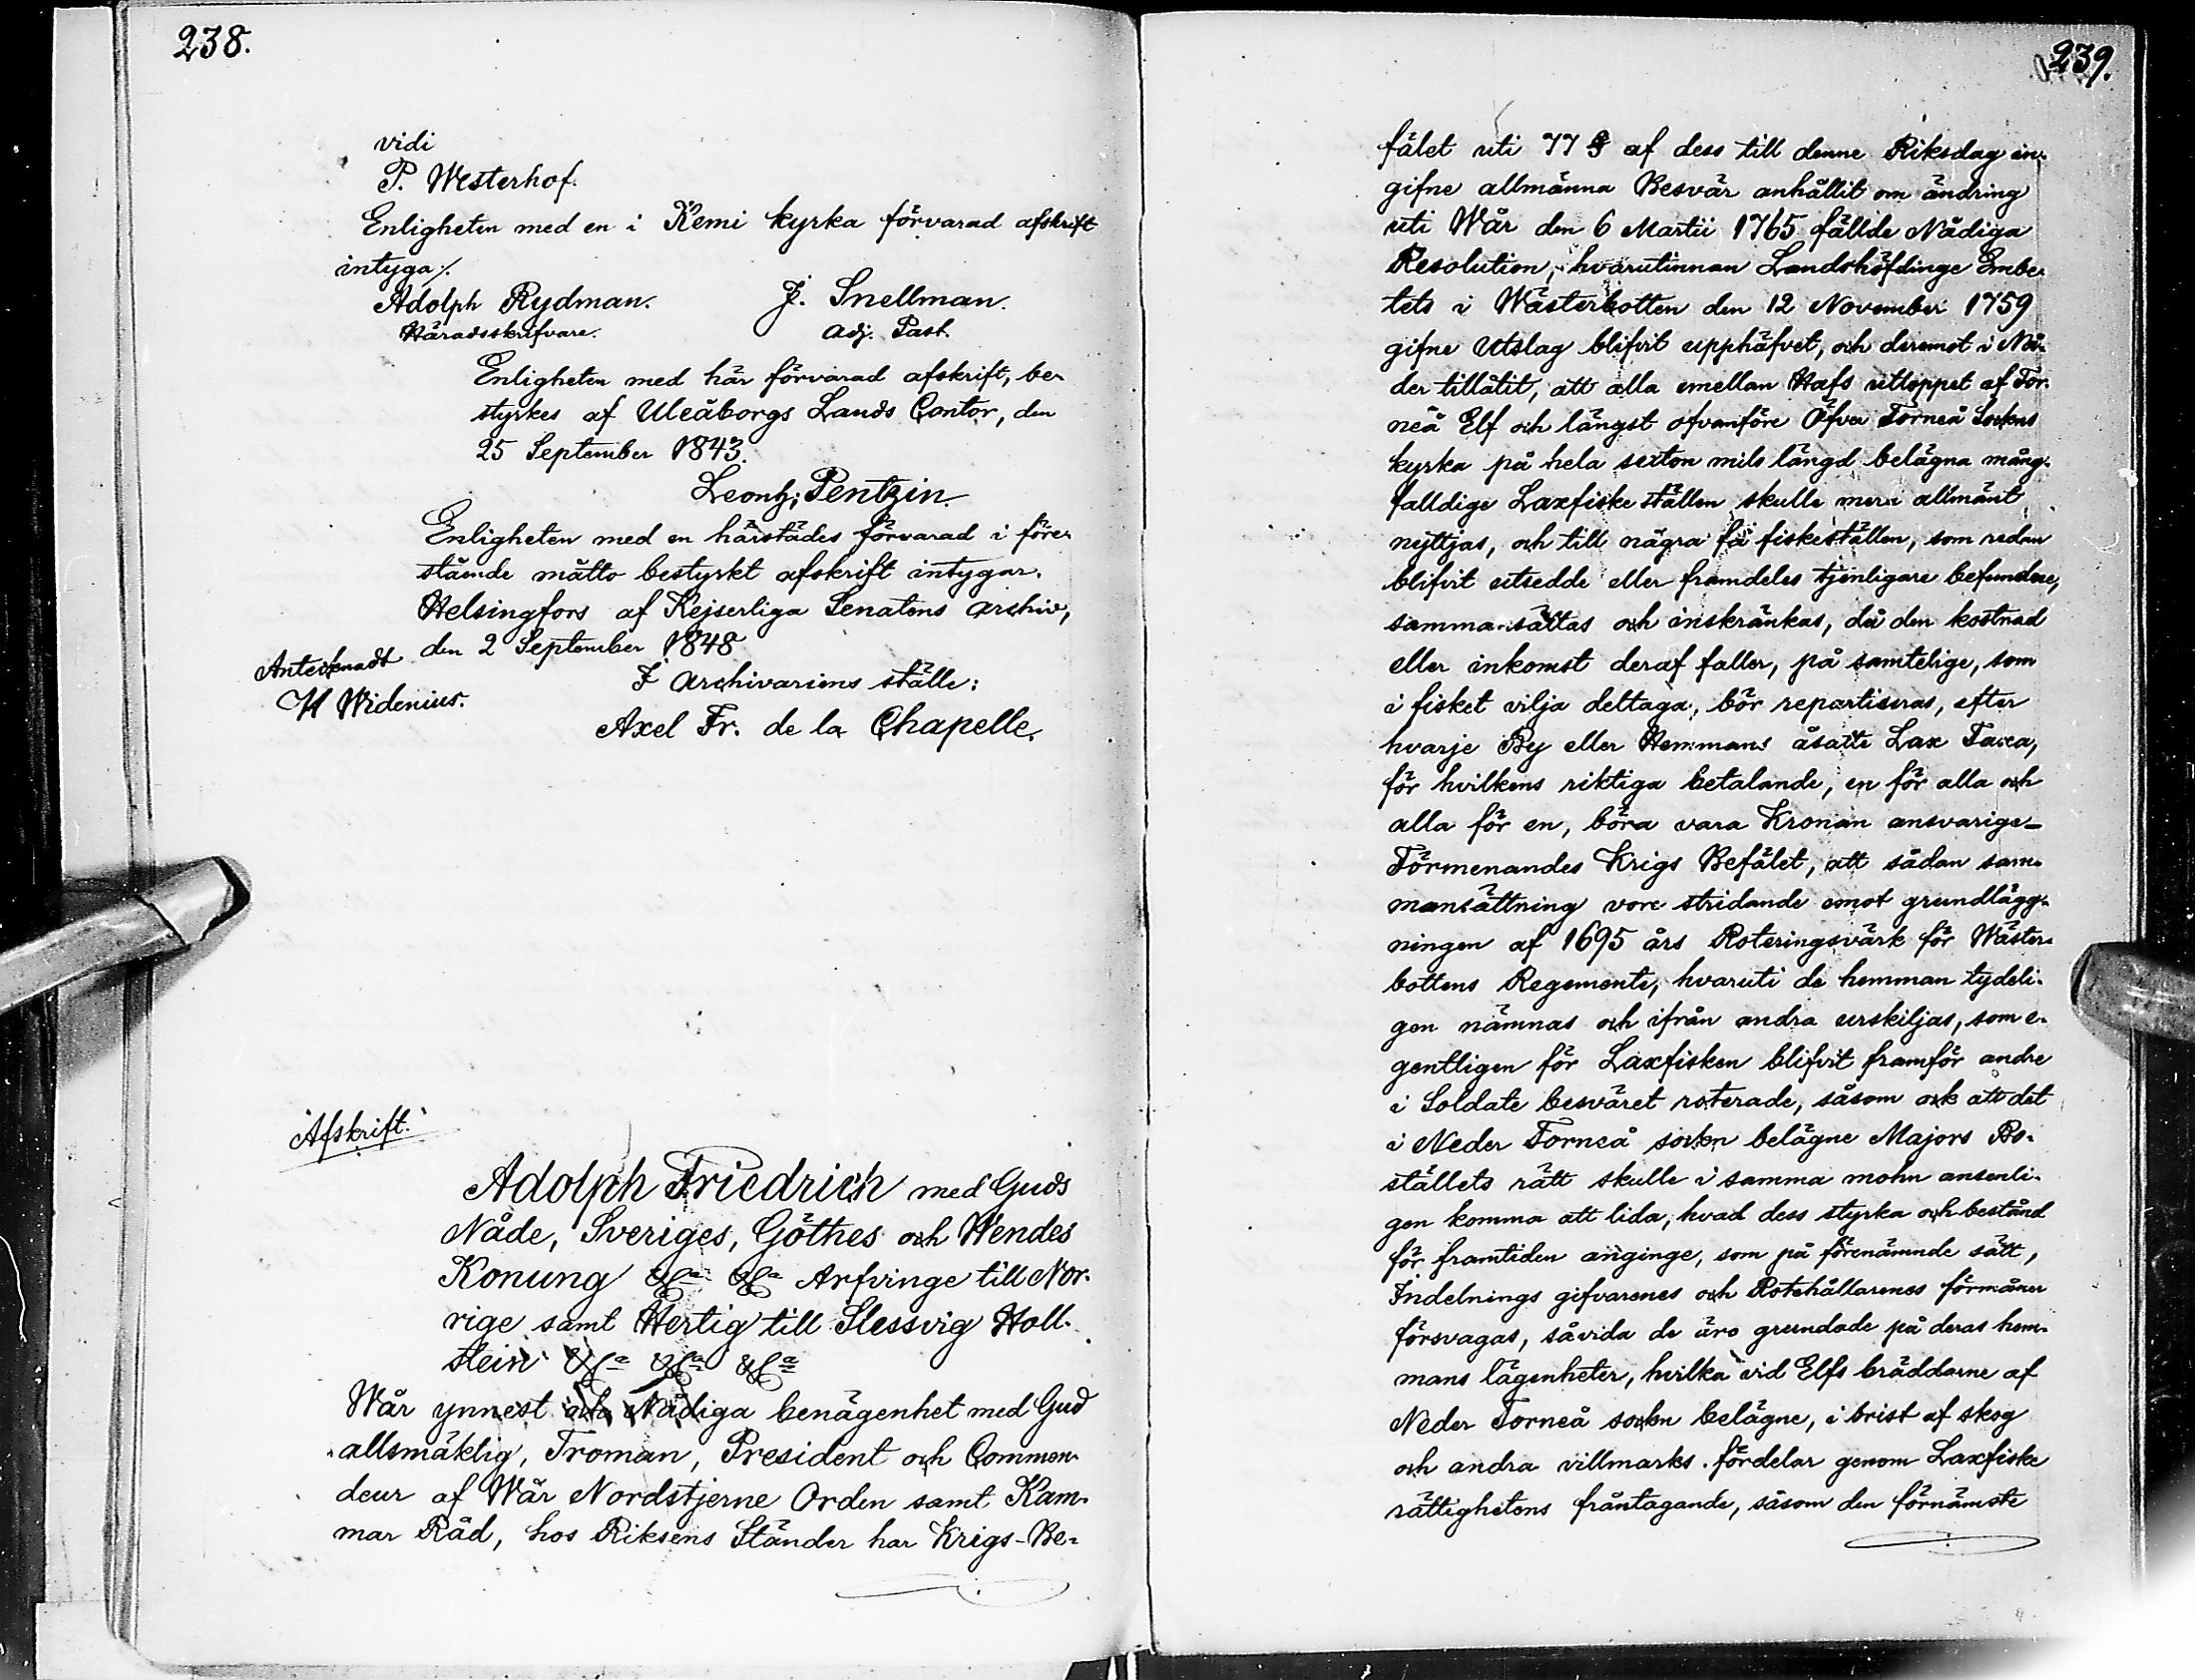 238.
vidi
P. Westerhof.
Enligheten med en i Kemi kyrka förvarad afskrift
intyga/.
Adolph Rydman. J. Snellman.
Häradsskrifvare. Adj. Past.
Enligheten med här förvarad afskrift, be-
styrkes af Uleåborgs Lands Contor, den
25 September 1843.
Leontz; Pentzin.
Enligheten med en härstädes förvarad i före-
stående måtto bestyrkt afskrift intygar.
Helsingfors af Kejserliga Senatens Archiv,
den 2 September 1848
Antecknadt
I Archivariens ställe:
Widenius.
Axel Fr. de la Chapelle.
Afskrift.
Adolph Friedrich med Guds
Nåde, Sveriges, Göthes och Wendes
Konung &c:a &c:a Arfvinge till Nor-
rige samt Hertig till Slessvig Holl-
stein &c:a &c:a &c:a
Wår ynnest och Nådiga benägenhet med Gud
allsmäktig, Troman, President och Commen-
deur af Wår Nordstjerne Orden samt Kam-
mar Råd, hos Riksens Ständer har Krigs-Be-
239.
fälet uti 77 § af dess till denne Riksdag in-
gifne allmänna Besvär anhållit om ändring
uti Wår den 6 Martii 1765 fällde Nådiga
Resolution, hvarutinnan Landshöfdinge Embe-
tets i Wästerbotten den 12 November 1759
gifne Utslag blifvit upphäfvet, och deremot i Nå-
der tillåtit, att alla emellan Hafs utloppet af Tor-
neå Elf och längst ofvanföre Öfver Torneå Sockens
kyrka på hela sexton mils längd belägna mång-
falldige Laxfiske ställen skulle mera allmänt
nyttjas, och till några få fiskeställen, som redan
blifvit utsedde eller framdeles tjenligare befundne,
samma-sättas och inskränkas, då den kostnad
eller inkomst deraf faller, på samtelige, som
i fisket vilja deltaga, bör repartiseras, efter
hvarje By eller Hemmans åsatte Lax Taxa,
för hvilkens riktiga betalande, en för alla och
alla för en, böra vara Kronan ansvarige_
Förmenandes Krigs Befälet, att sådan sam-
mansättning vore stridande emot grundlägg-
ningen af 1695 års Roteringsvärk för Wäster-
bottens Regemente, hvaruti de hemman tydeli-
gen nämnas och ifrån andra urskiljas, som e-
gentligen för Laxfisken blifvit framför andre
i Soldate besväret roterade, såsom ock att det
i Neder Torneå socken belägne Majors Bo-
ställets rätt skulle i samma mohn ansenli-
gen komma att lida, hvad dess styrka och bestånd
för framtiden anginge, som på förenämnde sätt,
Indelnings gifvarenes och Rotehållarenes förmåner
försvagas, såvida de äro grundade på deras hem-
mans lägenheter, hvilka vid Elfs bräddarne af
Neder Torneå socken belägne, i brist af skog
och andra villmarks fördelar genom Laxfiske
rättighetens fråntagande, såsom den förnämste